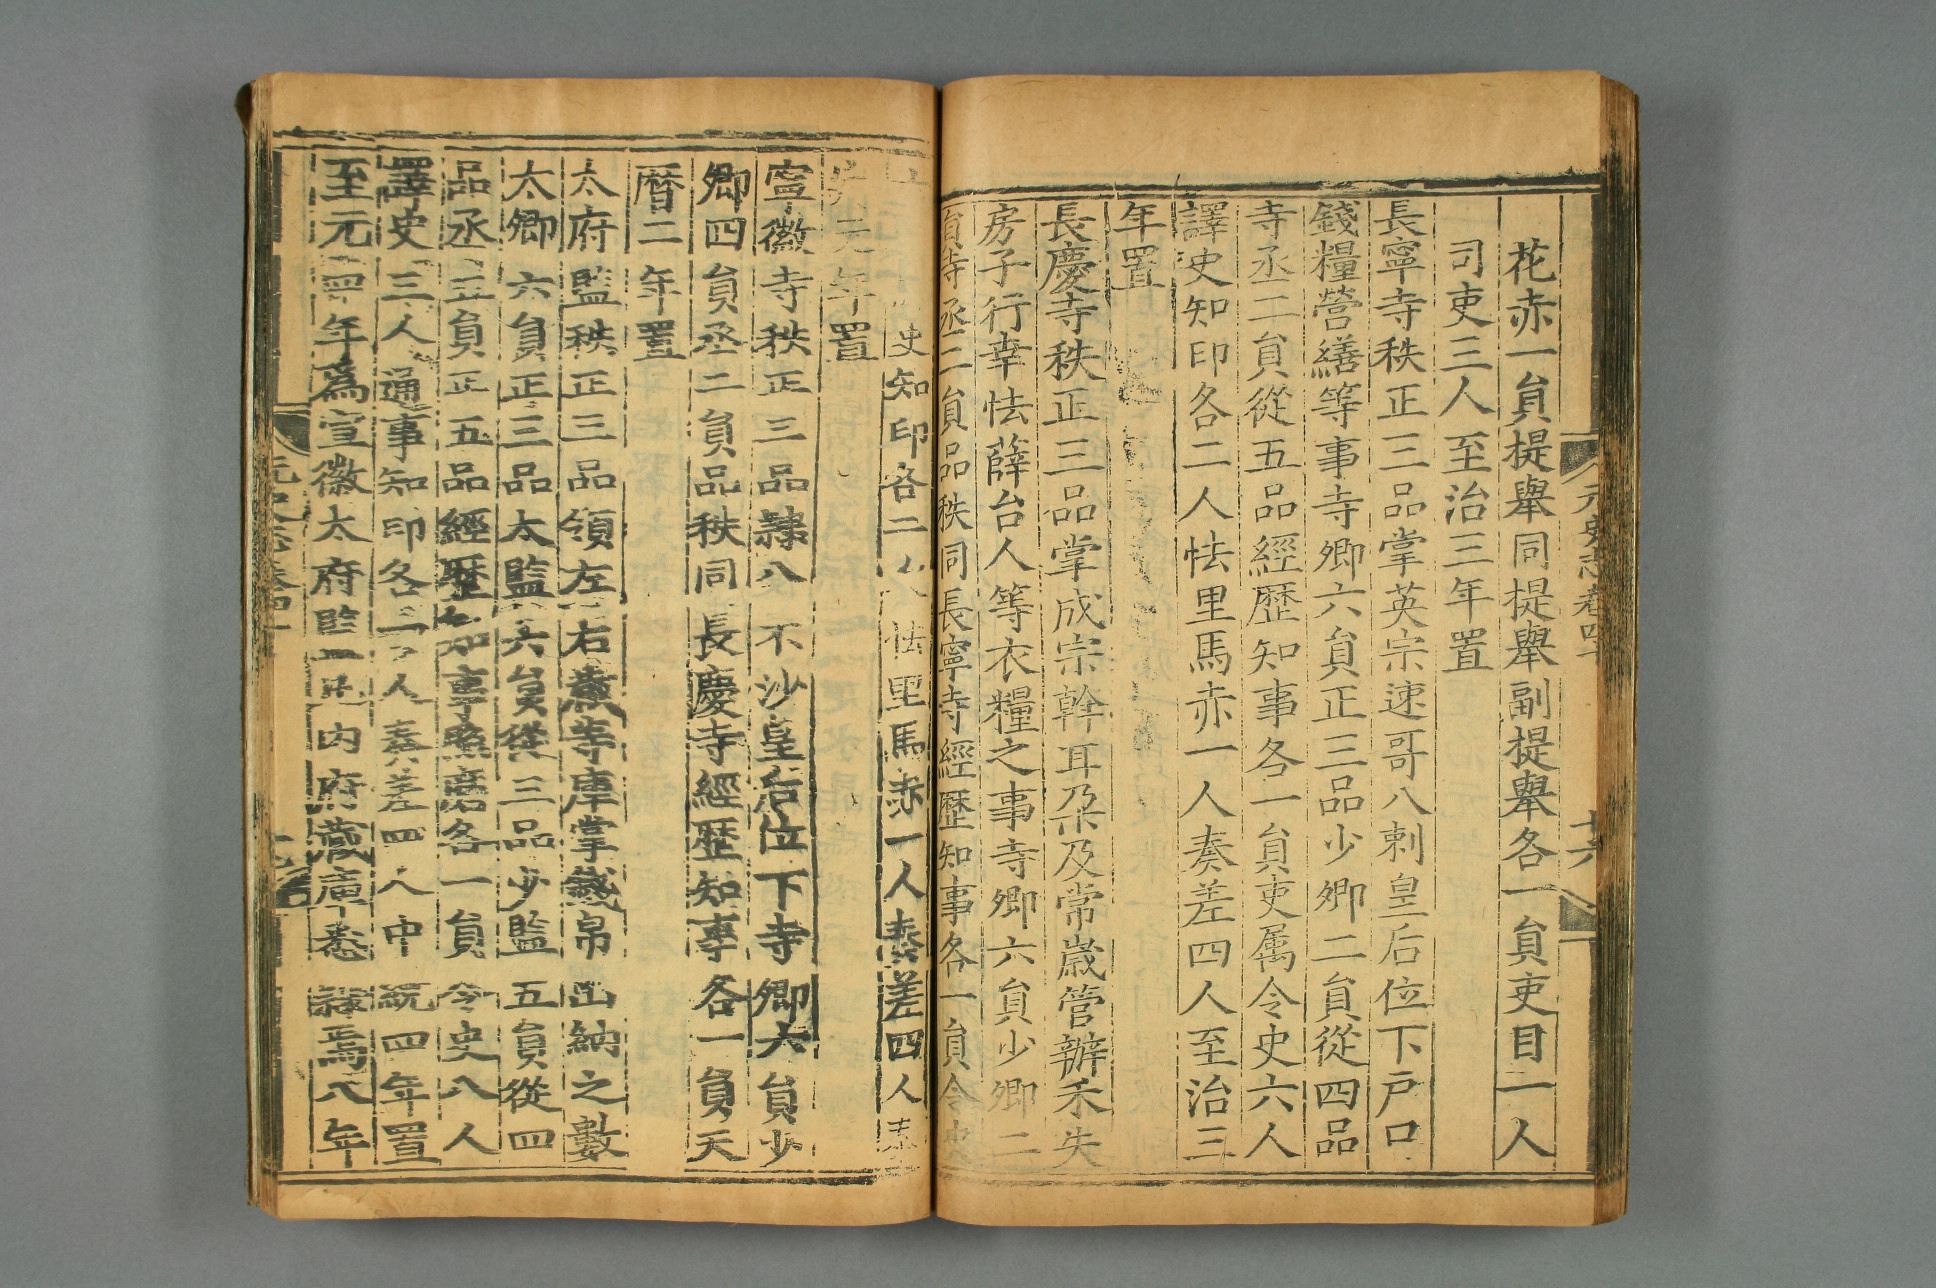 花赤一員提舉同提舉副提舉各一員吏目一人
司吏三人至治三年置
長寧寺秩正三品掌英宗速哥八剌皇后位下戶口
錢糧營繕等事寺卿六員正三品少卿二員從四品
寺丞二員從五品經歷知事各一員吏屬令史六人
譯史知印各二人怯里馬赤一人奏差四人至治三
年置
長慶寺秩正三品掌成宗斡耳朶及常歲管辦禾失
房子行幸怯薛台人等衣糧之事寺卿六員少卿二
員寺丞二員品秩同長寧寺經歷知事各一員令史
元史志卷四十
十六
史知印各二人怯里馬赤一人奏差四人
元年置
寧徽寺秩正三品隸八不沙皇后位下寺卿六員少
卿四員丞二員品秩同長慶寺經歷知事各一員天
曆二年置
太府監秩正三品領左右藏等庫掌錢帛出納之數
太卿六員正三品太監六員從三品少監五員從四
品丞五員正五品經歷知事照磨各一員令史八人
譯史三人通事知印各二人奏差四人中統四年置
至元四年爲宣徽太府監凡內府藏庫悉隸焉八年